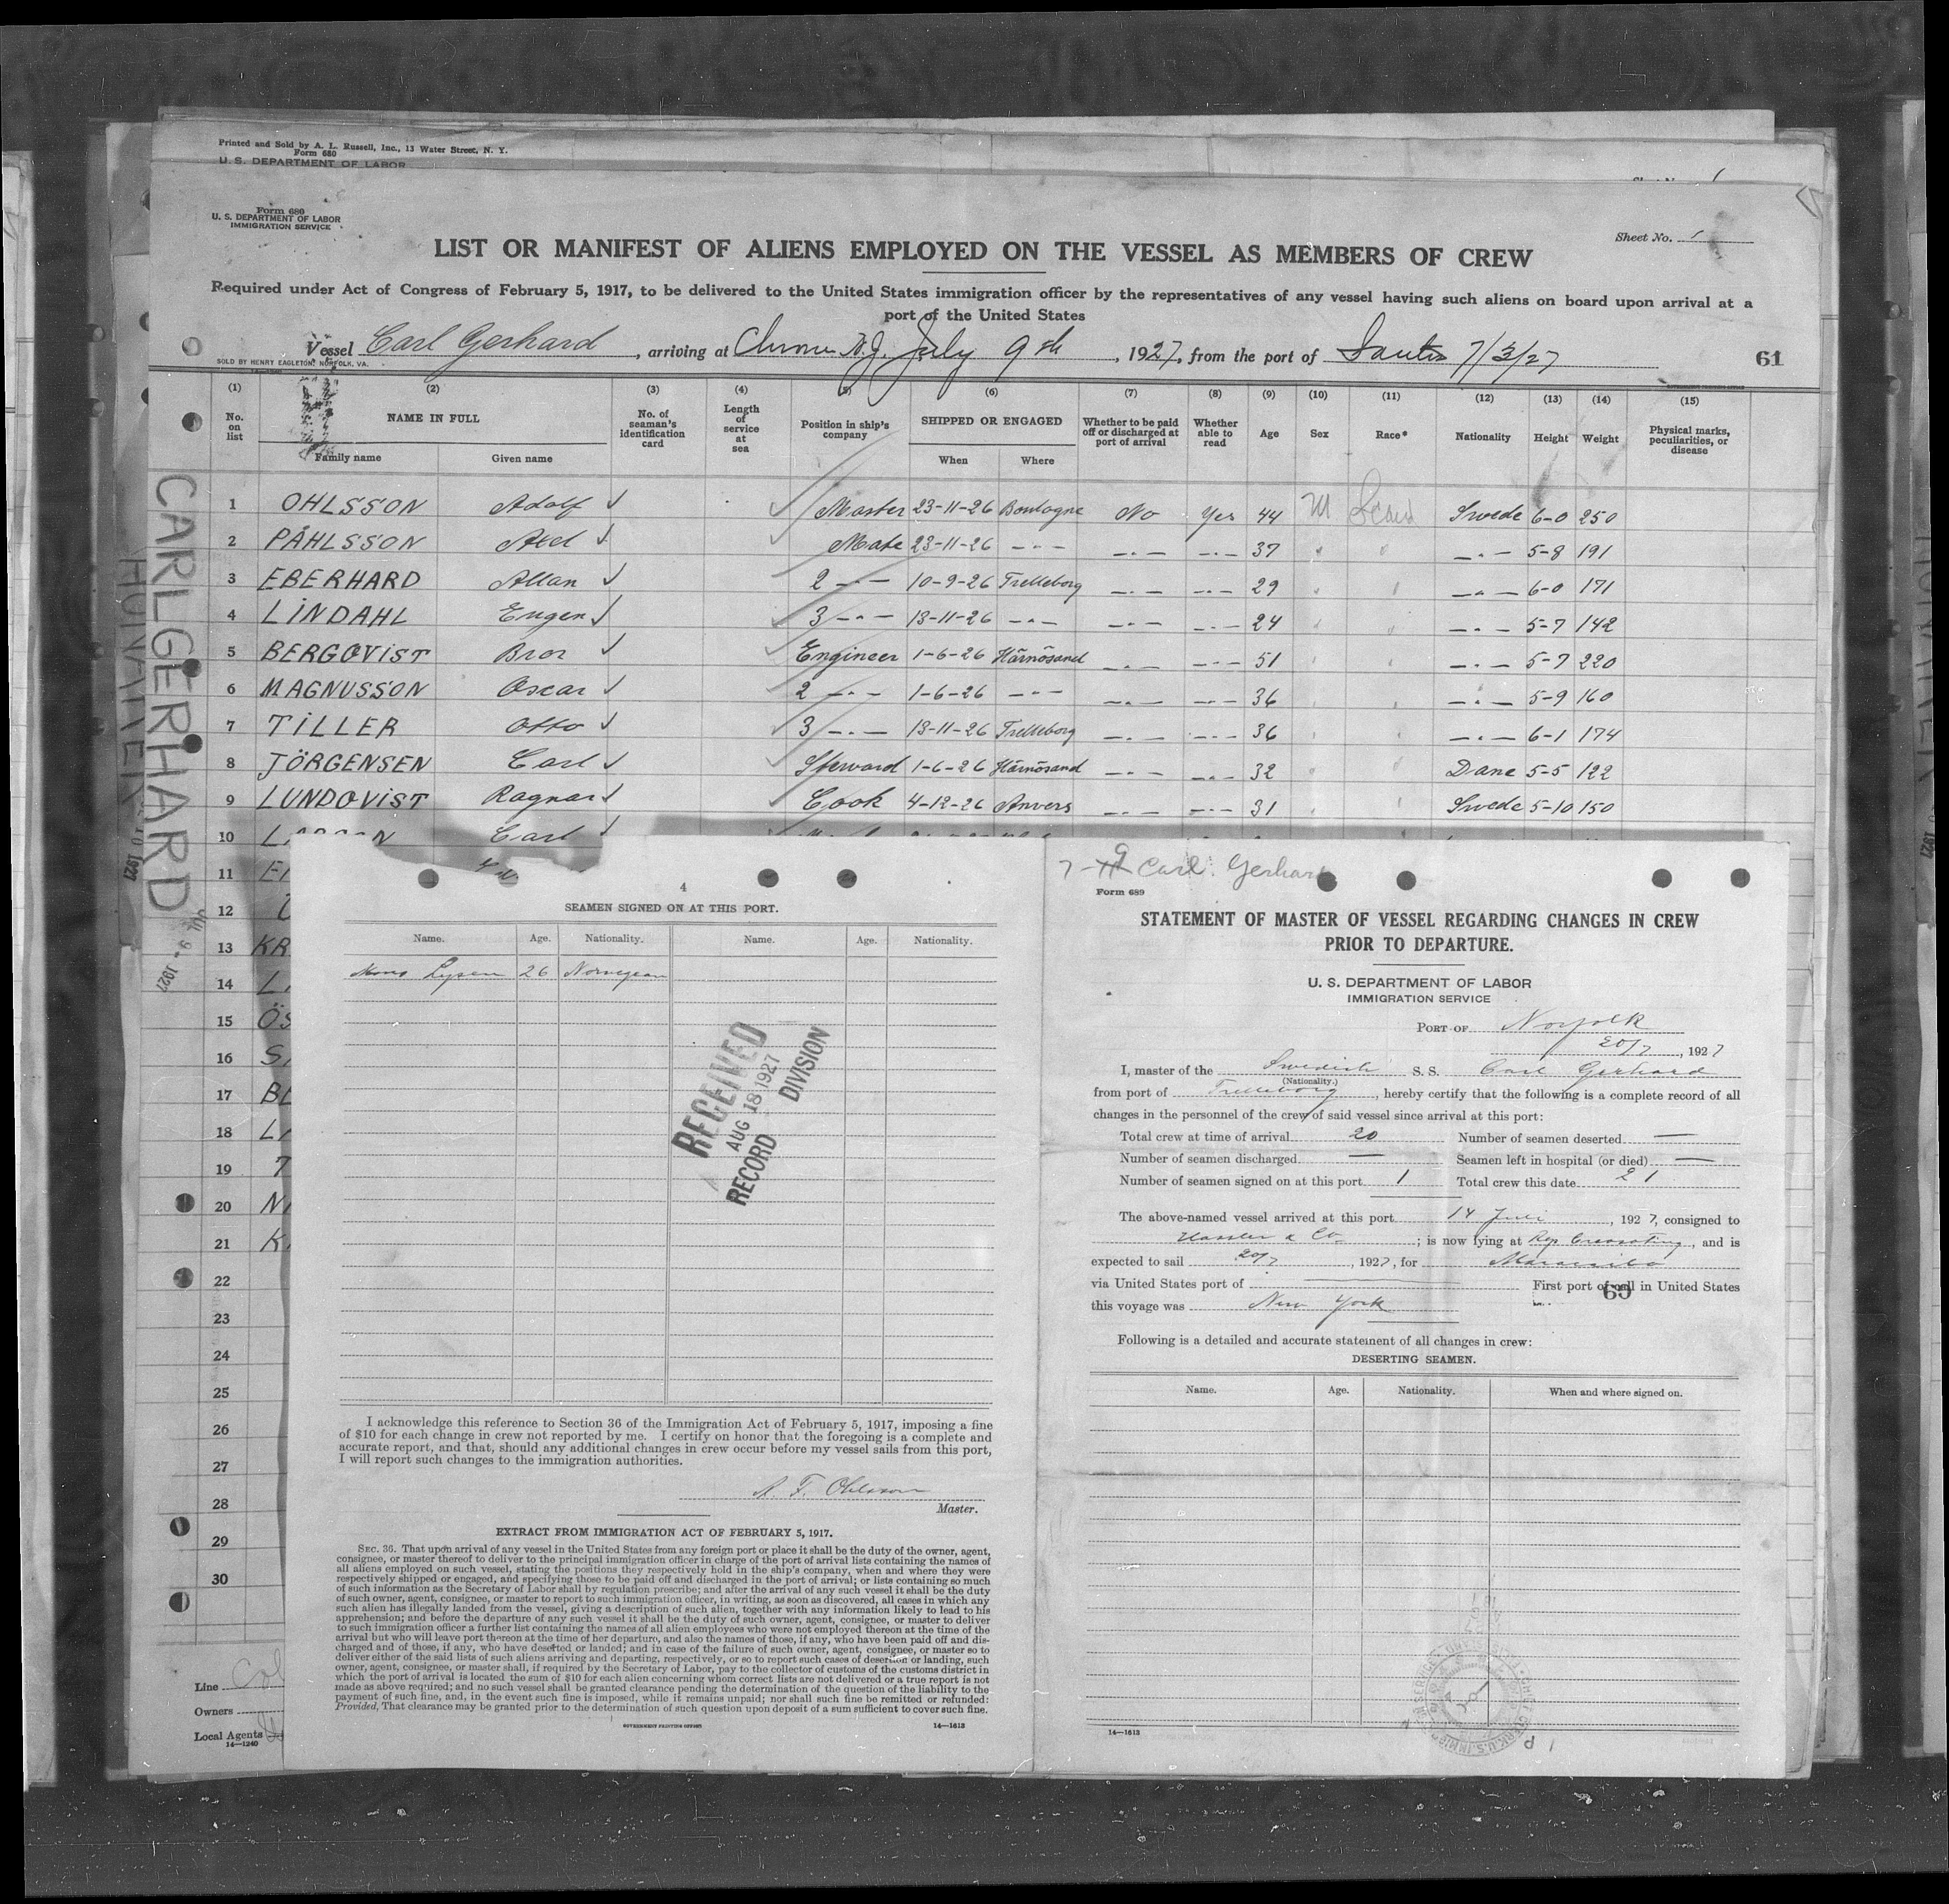 Printed and Sold by A. L. Russell, Inc., 13 Water Street, N. Y.
Form 680
U. S. DEPARTMENT OF LABOR
Form 680
U. S. DEPARTMENT OF LABOR
IMMIGRATION SERVICE
Sheet No. 1
LIST OR MANIFEST OF ALIENS EMPLOYED ON THE VESSEL AS MEMBERS OF CREW
Required under Act of Congress of February 5, 1917, to be delivered to the United States immigration officer by the representatives of any vessel having such aliens on board upon arrival at a
port of the United States
Vessel Carl Gerhard, arriving at Chrome N.J. July 9th, 1927, from the port of Santos 7/3/27
SOLD BY HENRY EAGLETON, NORFOLK, VA.
61
(1) (2) (3) (4) (5) (6) (7) (8) (9) (10) (11) (12) (13) (14) (15)
No. on list NAME IN FULL No. of seaman's identification card Length of service at sea Position in ship's company SHIPPED OR ENGAGED Whether to be paid off or discharged at port of arrival Whether able to read Age Sex Race* Nationality Height Weight Physical marks, peculiarities, or disease
Family name Given name When Where
1 OHLSSON Adolf ✓ Master 23-11-26 Boulogne No Yes 44 M Scand Swede 6-0 250
2 PÅHLSSON Axel ✓ Mate 23-11-26 -·- -·- -·- 37 " " -·- 5-8 191
3 EBERHARD Allan ✓ 2 -·- 10-9-26 Trelleborg -·- -·- 29 " " -·- 6-0 171
4 LINDAHL Eugen ✓ 3 -·- 13-11-26 -·- -·- -·- 24 " " -·- 5-7 142
5 BERGQVIST Bror ✓ Engineer 1-6-26 Härnösand -·- -·- 51 " " -·- 5-7 220
6 MAGNUSSON Oscar ✓ 2 -·- 1-6-26 -·- -·- -·- 36 " " -·- 5-9 160
7 TILLER Otto ✓ 3 -·- 13-11-26 Trelleborg -·- -·- 36 " " -·- 6-1 174
8 JÖRGENSEN Carl ✓ Steward 1-6-26 Härnösand -·- -·- 32 " " Dane 5-5 122
9 LUNDQVIST Ragnar ✓ Cook 4-12-26 Anvers -·- -·- 31 " " Swede 5-10 150
10 Carl ✓
11
12
13 KR
14 L
15 ÖS
16 S
17 BL
18 L
19 T
20 N
21 K
22
23
24
25
26
27
28
29
30
Line
Owners
Local Agents
14—1240
CARL GERHARD
JUL 9 - 1927
4
SEAMEN SIGNED ON AT THIS PORT.
Name. Age. Nationality. Name. Age. Nationality.
Lysen 26 Norwegean
RECEIVED
AUG 18 1927
RECORD DIVISION
I acknowledge this reference to Section 36 of the Immigration Act of February 5, 1917, imposing a fine
of $10 for each change in crew not reported by me. I certify on honor that the foregoing is a complete and
accurate report, and that, should any additional changes in crew occur before my vessel sails from this port,
I will report such changes to the immigration authorities.
A. F. Ohlsson
Master.
EXTRACT FROM IMMIGRATION ACT OF FEBRUARY 5, 1917.
SEC. 36. That upon arrival of any vessel in the United States from any foreign port or place it shall be the duty of the owner, agent,
consignee, or master thereof to deliver to the principal immigration officer in charge of the port of arrival lists containing the names of
all aliens employed on such vessel, stating the positions they respectively hold in the ship's company, when and where they were
respectively shipped or engaged, and specifying those to be paid off and discharged in the port of arrival; or lists containing so much
of such information as the Secretary of Labor shall by regulation prescribe; and after the arrival of any such vessel it shall be the duty
of such owner, agent, consignee, or master to report to such immigration officer, in writing, as soon as discovered, all cases in which any
such alien has illegally landed from the vessel, giving a description of such alien, together with any information likely to lead to his
apprehension; and before the departure of any such vessel it shall be the duty of such owner, agent, consignee, or master to deliver
to such immigration officer a further list containing the names of all alien employees who were not employed thereon at the time of the
arrival but who will leave port thereon at the time of her departure, and also the names of those, if any, who have been paid off and dis-
charged and of those, if any, who have deserted or landed; and in case of the failure of such owner, agent, consignee, or master so to
deliver either of the said lists of such aliens arriving and departing, respectively, or so to report such cases of desertion or landing, such
owner, agent, consignee, or master shall, if required by the Secretary of Labor, pay to the collector of customs of the customs district in
which the port of arrival is located the sum of $10 for each alien concerning whom correct lists are not delivered or a true report is not
made as above required; and no such vessel shall be granted clearance pending the determination of the question of the liability to the
payment of such fine, and, in the event such fine is imposed, while it remains unpaid; nor shall such fine be remitted or refunded:
Provided, That clearance may be granted prior to the determination of such question upon deposit of a sum sufficient to cover such fine.
GOVERNMENT PRINTING OFFICE 14—1613
Carl Gerhard
Form 689
STATEMENT OF MASTER OF VESSEL REGARDING CHANGES IN CREW
PRIOR TO DEPARTURE.
U. S. DEPARTMENT OF LABOR
IMMIGRATION SERVICE
PORT OF Norfolk
20/7, 1927
I, master of the Swedish S. S. Carl Gerhard
(Nationality.)
from port of Trelleborg, hereby certify that the following is a complete record of all
changes in the personnel of the crew of said vessel since arrival at this port:
Total crew at time of arrival 20 Number of seamen deserted —
Number of seamen discharged — Seamen left in hospital (or died) —
Number of seamen signed on at this port 1 Total crew this date 21
The above-named vessel arrived at this port 14 Juli, 1927, consigned to
Hasler & Co; is now lying at Rep Creosoting, and is
expected to sail 20/7, 1927, for
via United States port of — First port of call in United States
69
this voyage was New York
Following is a detailed and accurate statement of all changes in crew:
DESERTING SEAMEN.
Name. Age. Nationality. When and where signed on.
14—1613